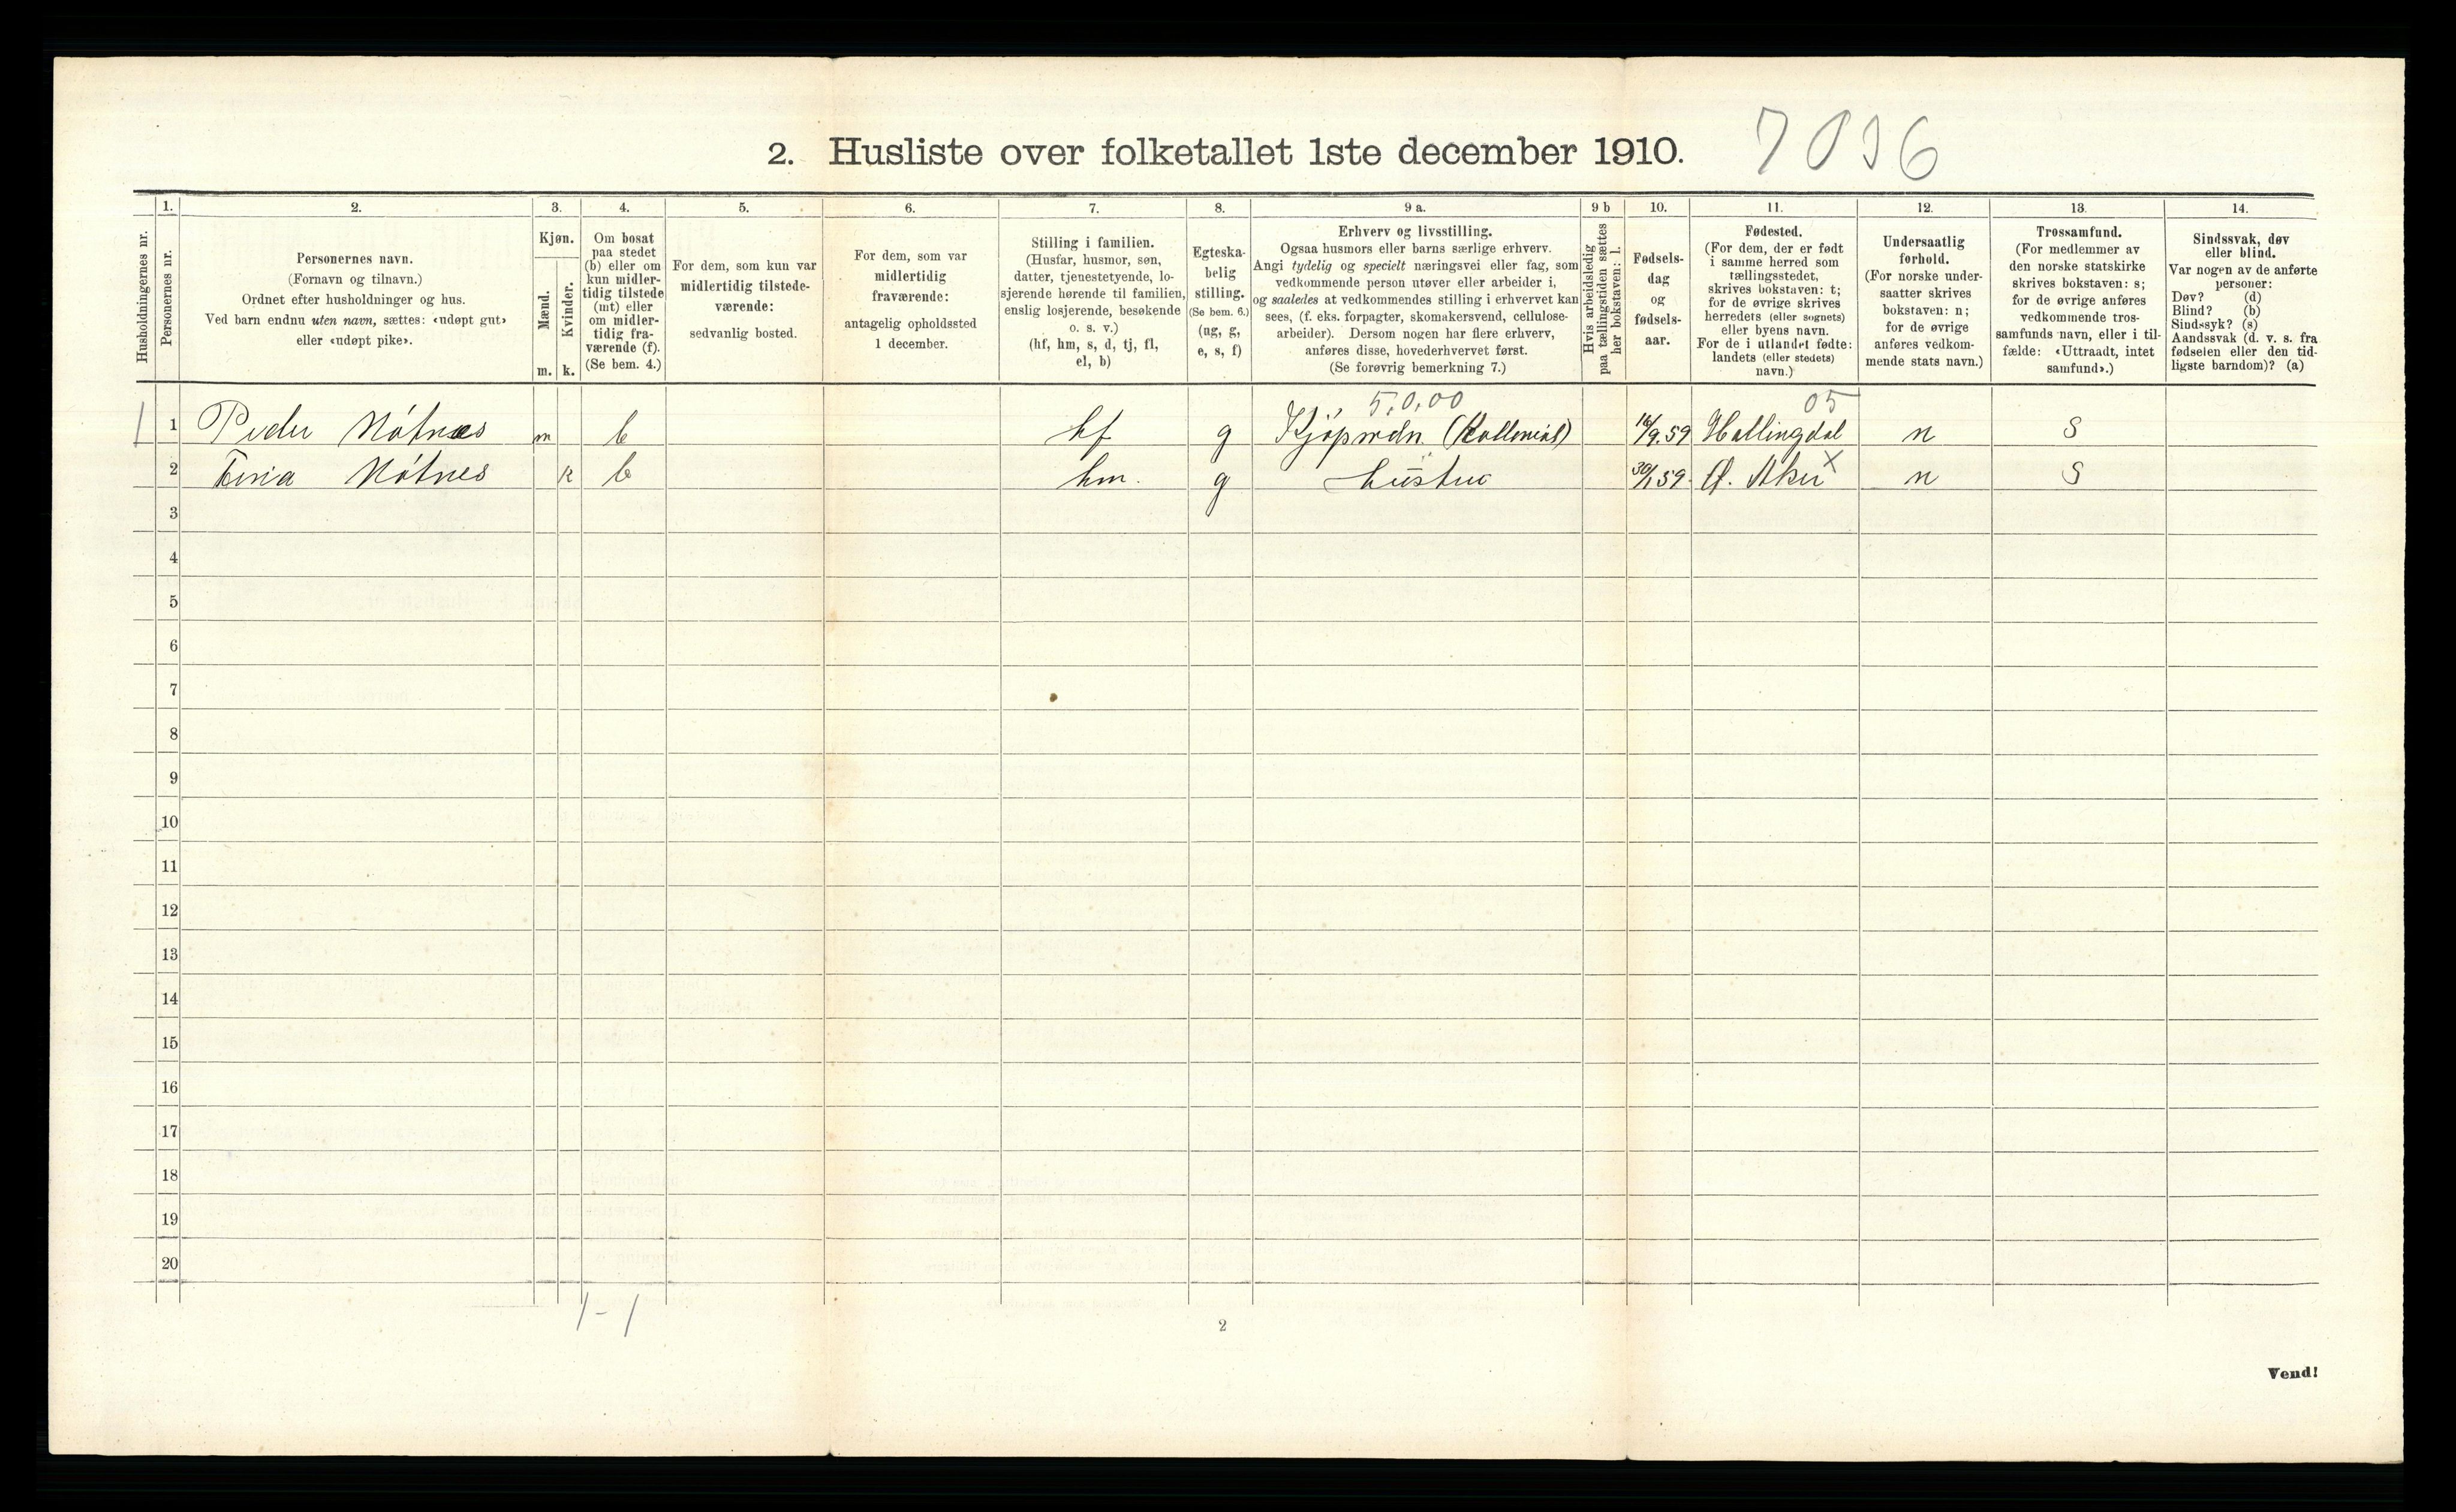 2. Husliste over folketallet 1ste december 1910. 7036
1. 2. 3. 4. 5. 6. 7. 8. 9 a. 9 b 10. 11. 12. 13. 14.
Husholdningernes nr.
Personernes nr.
Personernes navn.
(Fornavn og tilnavn.)
Ordnet efter husholdninger og hus.
Ved barn endnu uten navn, sættes: «udøpt gut»
eller «udøpt pike».
Kjøn.
Mænd.
Kvinder.
m. k.
Om bosat
paa stedet
(b) eller om
kun midler-
tidig tilstede
(mt) eller
om midler-
tidig fra-
værende (f).
(Se bem. 4.)
For dem, som kun var
midlertidig tilstede-
værende:
sedvanlig bosted.
For dem, som var
midlertidig
fraværende:
antagelig opholdssted
1 december.
Stilling i familien.
(Husfar, husmor, søn,
datter, tjenestetyende, lo-
sjerende hørende til familien,
enslig losjerende, besøkende
o. s. v.)
(hf, hm, s, d, tj, fl,
el, b)
Egteska-
belig
stilling.
(Se bem. 6.)
(ug, g,
e, s, f)
Erhverv og livsstilling.
Ogsaa husmors eller barns særlige erhverv.
Angi tydelig og specielt næringsvei eller fag, som
vedkommende person utøver eller arbeider i,
og saaledes at vedkommendes stilling i erhvervet kan
sees, (f. eks. forpagter, skomakersvend, cellulose-
arbeider). Dersom nogen har flere erhverv,
anføres disse, hovederhvervet først.
(Se forøvrig bemerkning 7.)
Hvis arbeidsledig
paa tællingstiden sættes
her bokstaven: l.
Fødsels-
dag
og
fødsels-
aar.
Fødested.
(For dem, der er født
i samme herred som
tællingsstedet,
skrives bokstaven: t;
for de øvrige skrives
herredets (eller sognets)
eller byens navn.
For de i utlandet fødte:
landets (eller stedets)
navn.)
Undersaatlig
forhold.
(For norske under-
saatter skrives
bokstaven: n;
for de øvrige
anføres vedkom-
mende stats navn.)
Trossamfund.
(For medlemmer av
den norske statskirke
skrives bokstaven: s;
for de øvrige anføres
vedkommende tros-
samfunds navn, eller i til-
fælde: «Uttraadt, intet
samfund».)
Sindssvak, døv
eller blind.
Var nogen av de anførte
personer:
Døv? (d)
Blind? (b)
Sindssyk? (s)
Aandssvak (d. v. s. fra
fødselen eller den tid-
ligste barndom)? (a)
5,0,00 05
1 1 Peder Nótnes m b hf g Kjøpmdn (Kolloneial) 16/9.59 Hallingdal n S
2 Nótnes k b hm. g hústru 30/1 59. Ø. Aker x n S
3
4
5
6
7
8
9
10
11
12
13
14
15
16
17
18
19
20
1-1
2
Vend!